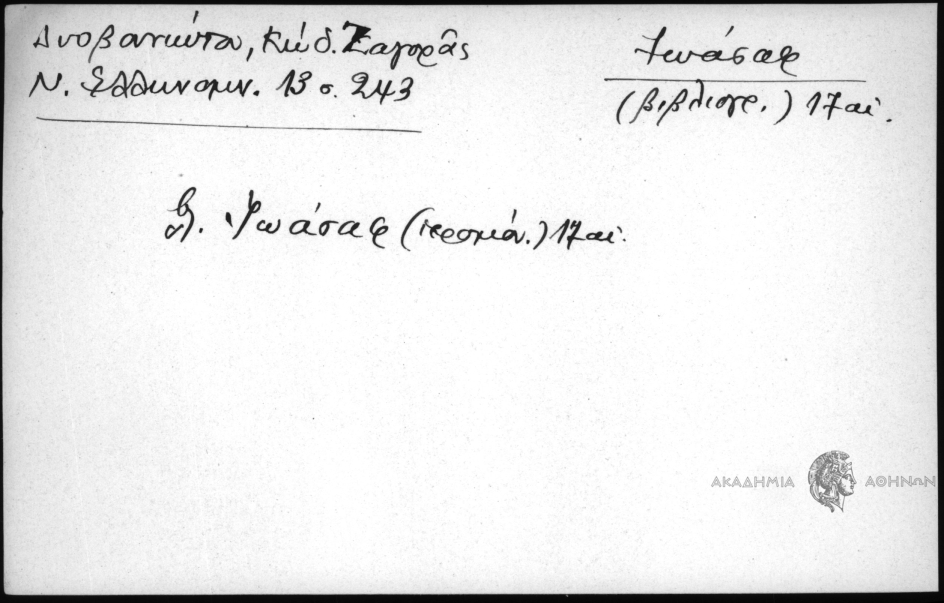 Δυοβουνιώτου, Κώδ. Ζαγορᾶς
Ν. Ἑλληνομν. 13 σ. 243
Ἰωάσαφ
(βιβλιογρ.) 17 αἰ.
βλ. Ἰωάσαφ (ἱερομόν.) 17 αἰ.
ΑΚΑΔΗΜΙΑ ΑΘΗΝΩΝ